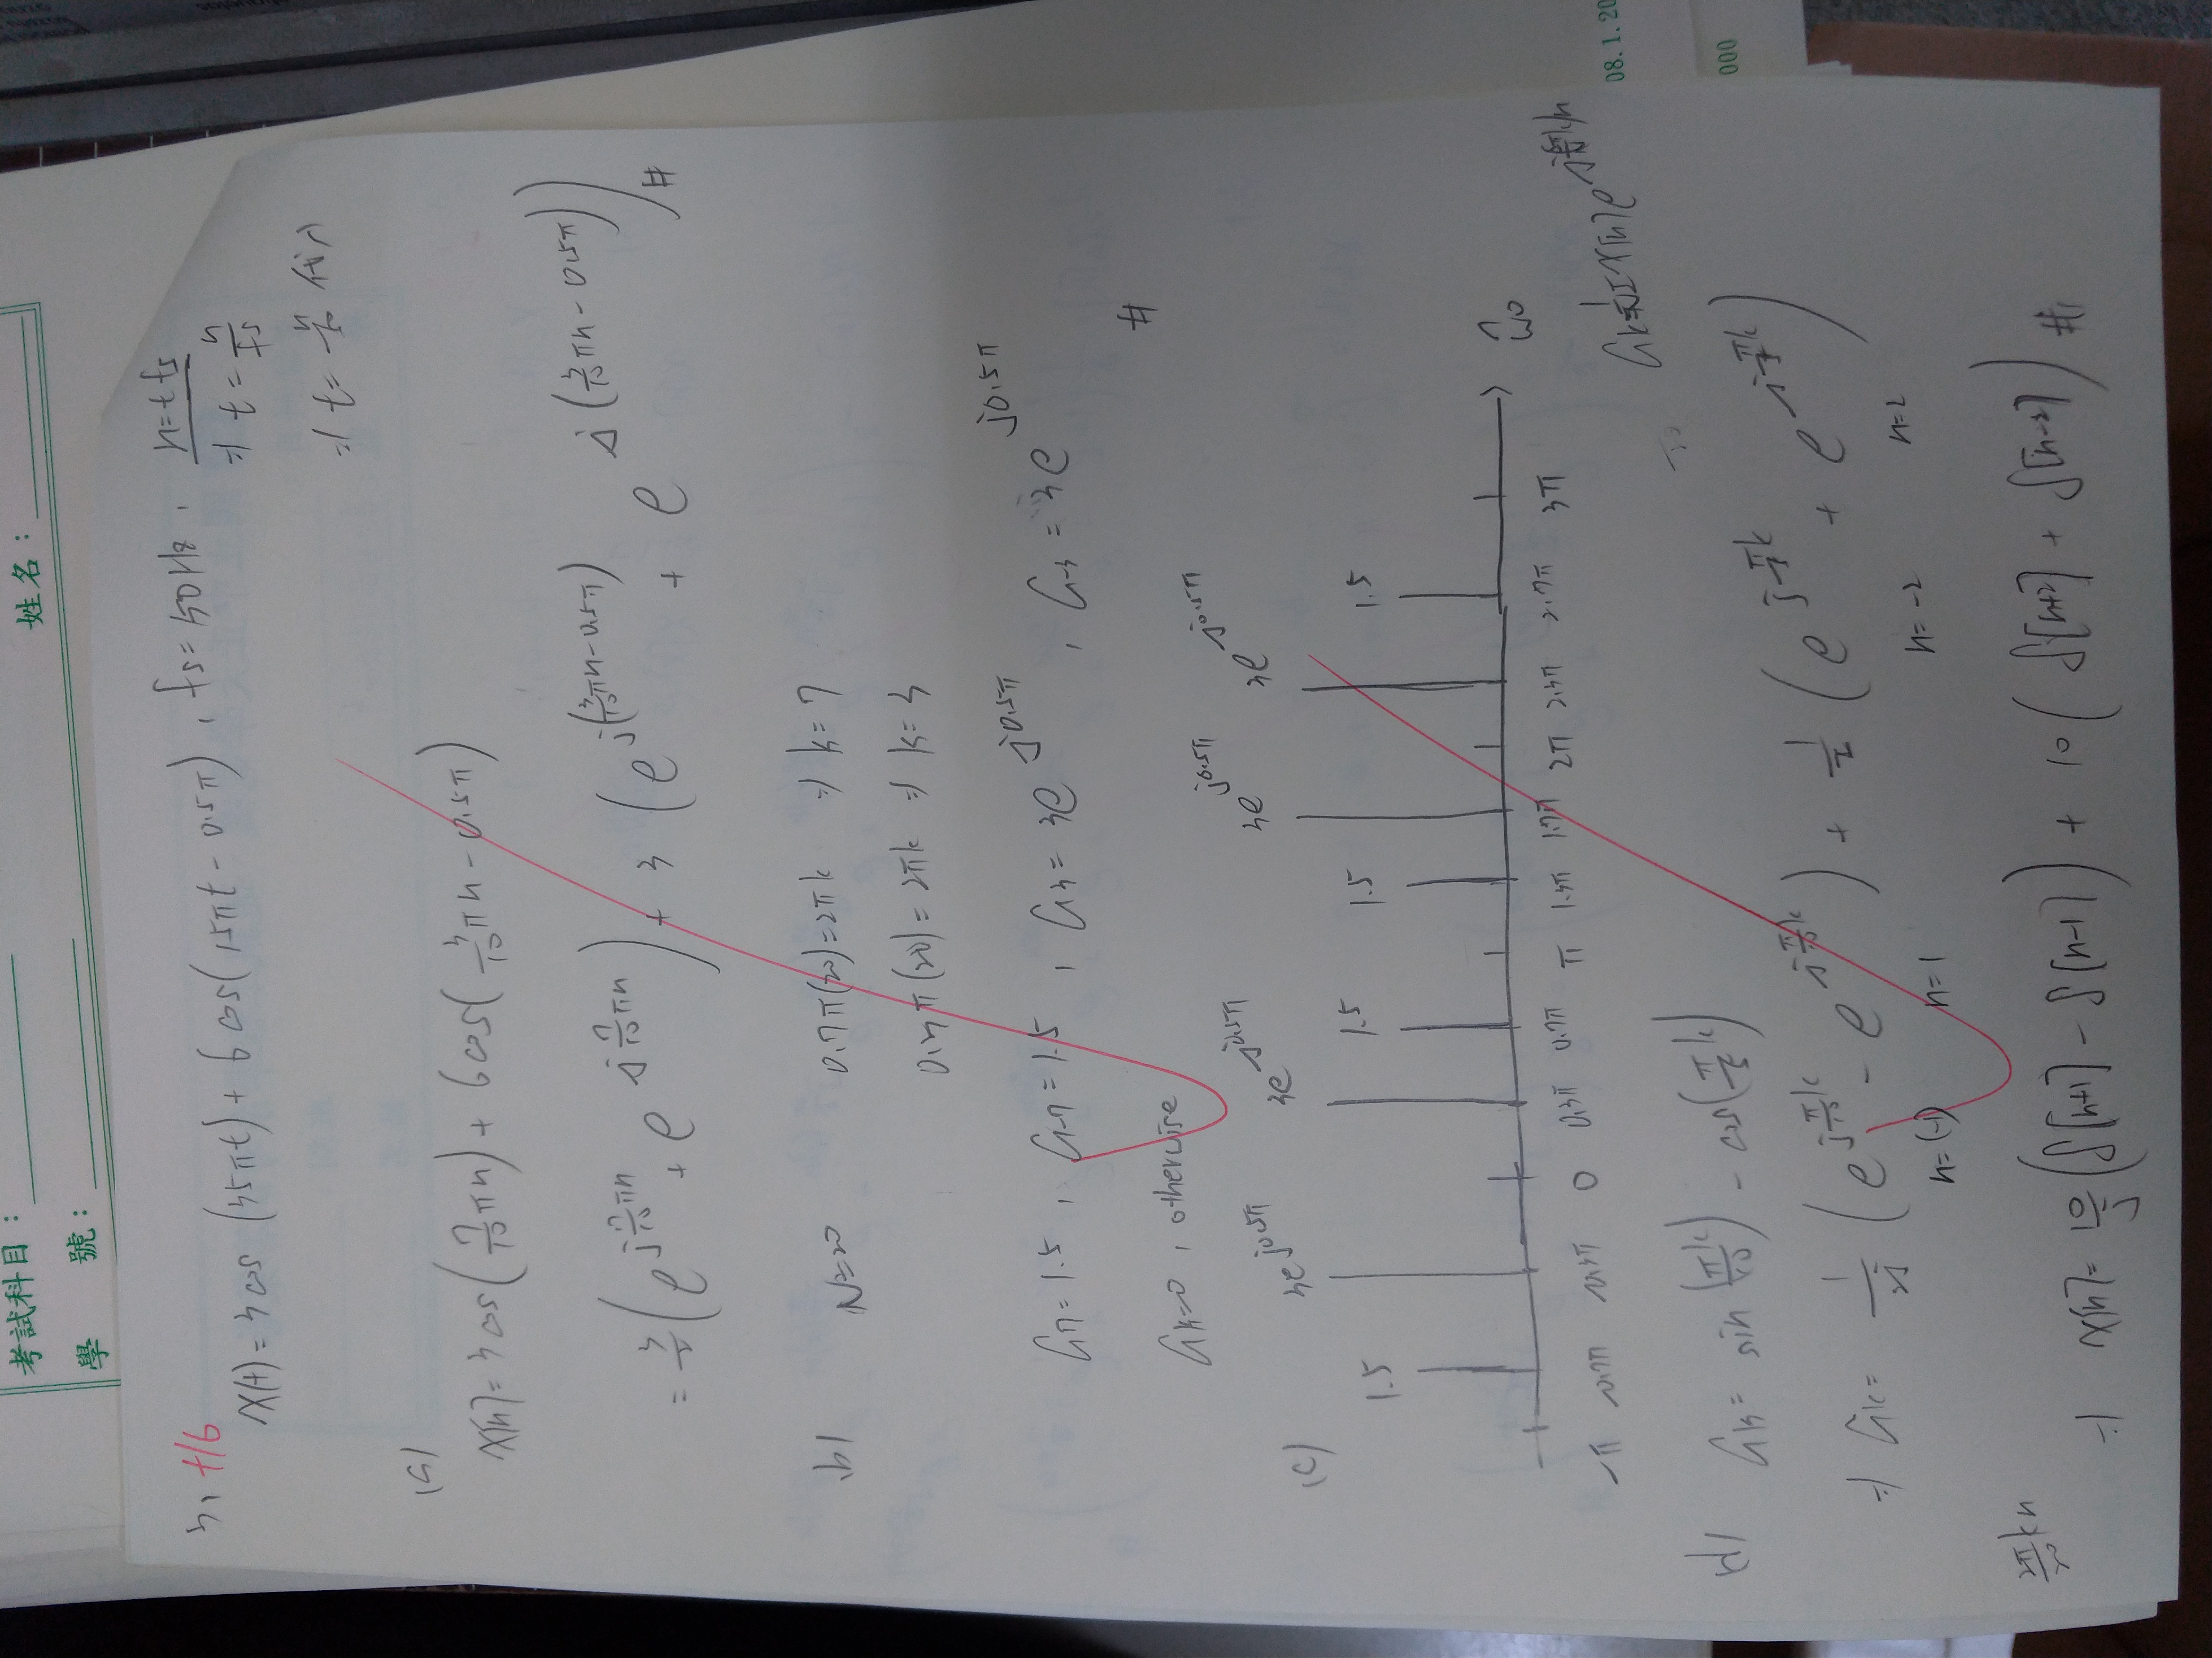 考試科目：
姓名：
學 號：
3. +16
x(t) = 3 cos (35πt) + 6 cos(15πt - 0.5π) , fs = 50Hz , n = t fs
⇒ t = n/fs
⇒ t = n/50 代入
(a)
x[n] = 3 cos(7/10 πn) + 6 cos(3/10 πn - 0.5π)
= 3/2 (e^{j 7/10 πn} + e^{-j 7/10 πn}) + 3 (e^{j(3/10 πn - 0.5π)} + e^{-j(3/10 πn - 0.5π)}) #
(b) N=20 0.7π(20) = 2πk ⇒ k = 7
0.3π(20) = 2πk ⇒ k = 3
a7 = 1.5 , a-7 = 1.5 , a3 = 3e^{-j0.5π} , a-3 = 3e^{j0.5π}
#
ak=0 , otherwise
(c) 3e^{j0.5π} 3e^{-j0.5π} 3e^{j0.5π} 3e^{-j0.5π}
1.5 1.5 1.5 1.5
-π -0.7π -0.3π 0 0.3π 0.7π π 1.3π 1.7π 2π 2.3π 2.7π 3π ω̂0
ak = 1/N Σ x[n] e^{-j(2π/N)kn}
08.1.20
000
(d) ak = sin(πk/10) - cos(π/5 k)
⇒ ak = 1/2j (e^{j π/10 k} - e^{-j π/10 k}) + 1/2 (e^{j π/5 k} + e^{-j π/5 k})
n=(-1) n=1 n=-2 n=2
2π/20 kn
⇒ x[n] = 10/j (δ[n+1] - δ[n-1]) + 10 (δ[n+2] + δ[n-2]) #